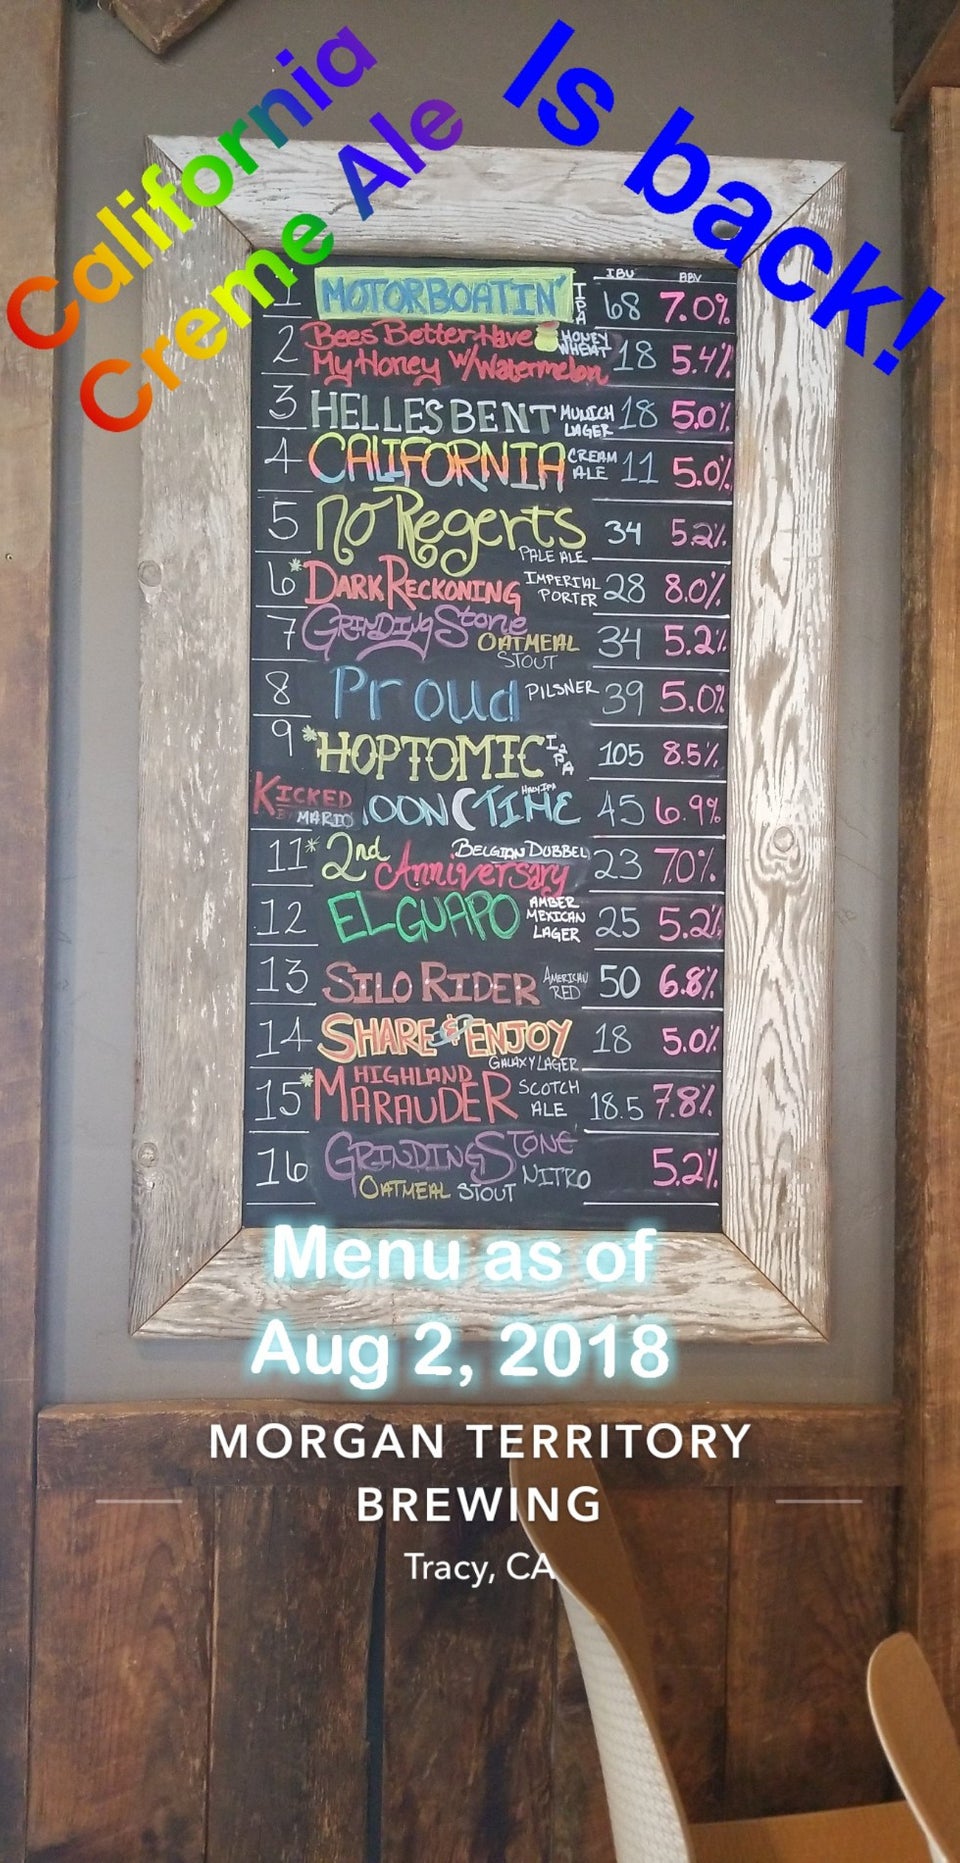 California
Creme Ale
Is back!
IBU ABV
1 MOTORBOATIN' IPA 68 7.0%
2 Bees Better Have HONEY
My Honey W/Watermelon WHEAT 18 5.4%
3 HELLES BENT MUNICH LAGER 18 5.0%
4 CALIFORNIA CREAM ALE 11 5.0%
5 No Regerts 34 5.2%
PALE ALE
6* DARK RECKONING IMPERIAL PORTER 28 8.0%
7 GRINDING Stone 34 5.2%
OATMEAL
STOUT
8 Proud PILSNER 39 5.0%
9 *HOPTOMIC I2PA 105 8.5%
KICKED LOON TIME HAZY IPA 45 6.9%
BY MARIO
11* 2nd BELGIAN DUBBEL 23 7.0%
Anniversary
12 EL GUAPO AMBER MEXICAN LAGER 25 5.2%
13 SILO RIDER AMERICAN RED 50 6.8%
14 SHARE & ENJOY 18 5.0%
GALAXY LAGER
15* HIGHLAND
MARAUDER SCOTCH ALE 18.5 7.8%
16 GRINDING STONE
NITRO 5.2%
OATMEAL STOUT
Menu as of
Aug 2, 2018
MORGAN TERRITORY
BREWING
Tracy, CA